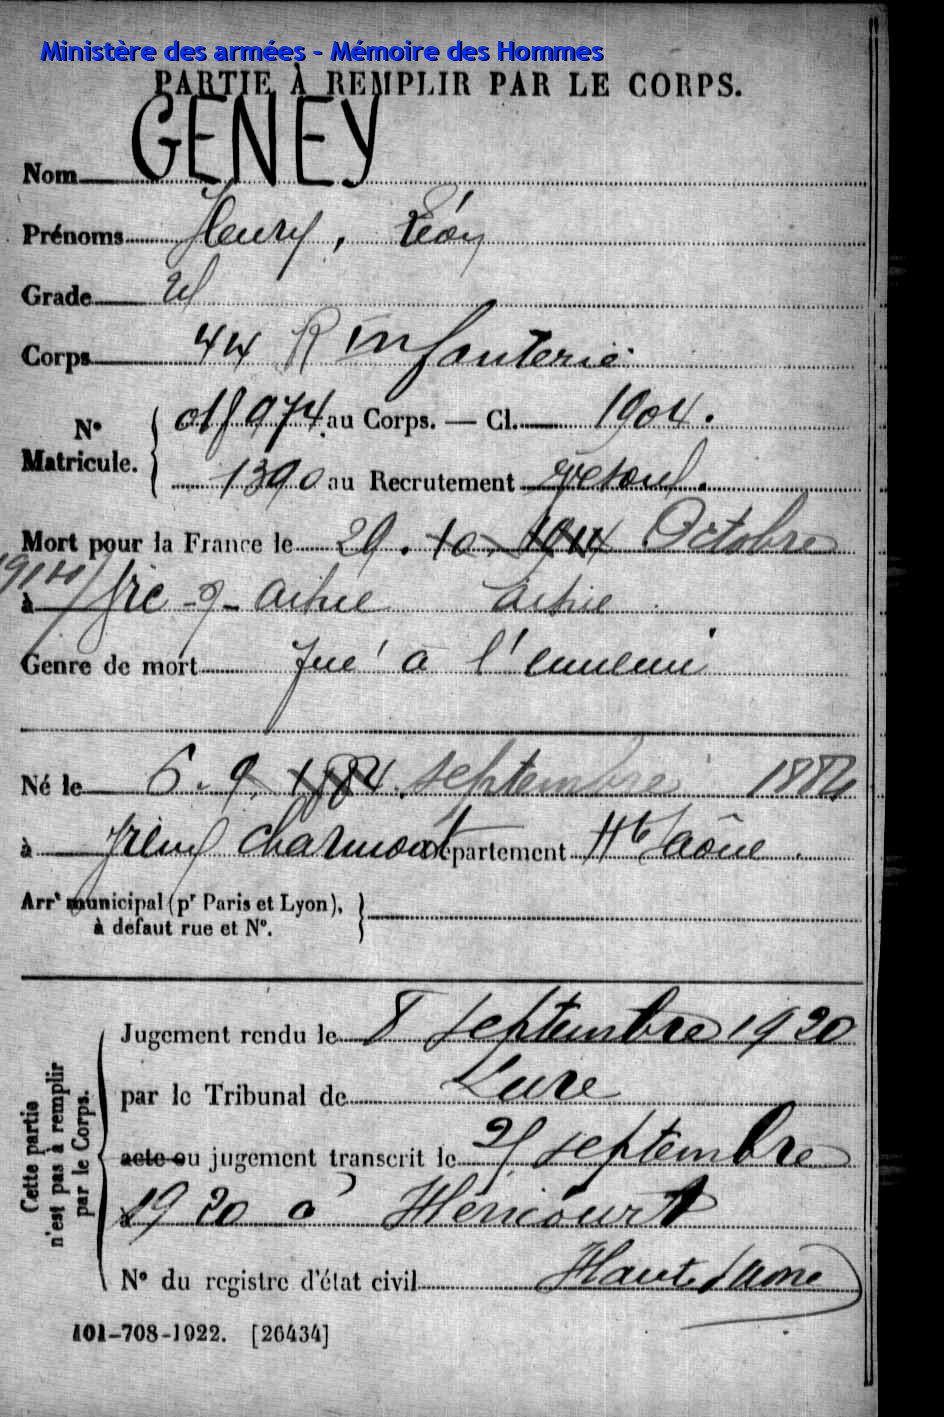 Ministère des armées - Mémoire des Hommes
PARTIE À REMPLIR PAR LE CORPS.
Nom GENEY
Prénoms Henry, Léon
Grade
Corps 44 R Infanterie
N° Matricule. 974 au Corps. — Cl. 1904.
1390 au Recrutement Vesoul.
Mort pour la France le 29. 10. 1914 Octobre
1914
à Vic-s-Aisne Aisne
Genre de mort Tué à l'ennemi
Né le 6. 9. 1884. septembre 1884
à Charmont département Hte Saône.
Arrt municipal (pr Paris et Lyon),
à défaut rue et N°.
Cette partie
n'est pas à remplir
par le Corps.
Jugement rendu le 8 septembre 1920
par le Tribunal de Lure
acte ou jugement transcrit le septembre
1920 à Héricourt
N° du registre d'état civil Haute Saône
101-708-1922. [26434]